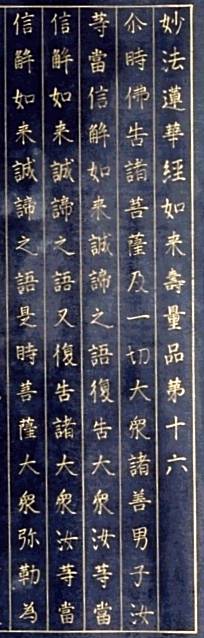 妙法蓮華經如来壽量品第十六
尒時佛告諸菩薩及一切大衆諸善男子汝
等當信解如来誠諦之語復告大衆汝等當
信解如来誠諦之語又復告諸大衆汝等當
信解如来誠諦之語是時菩薩大衆弥勒為